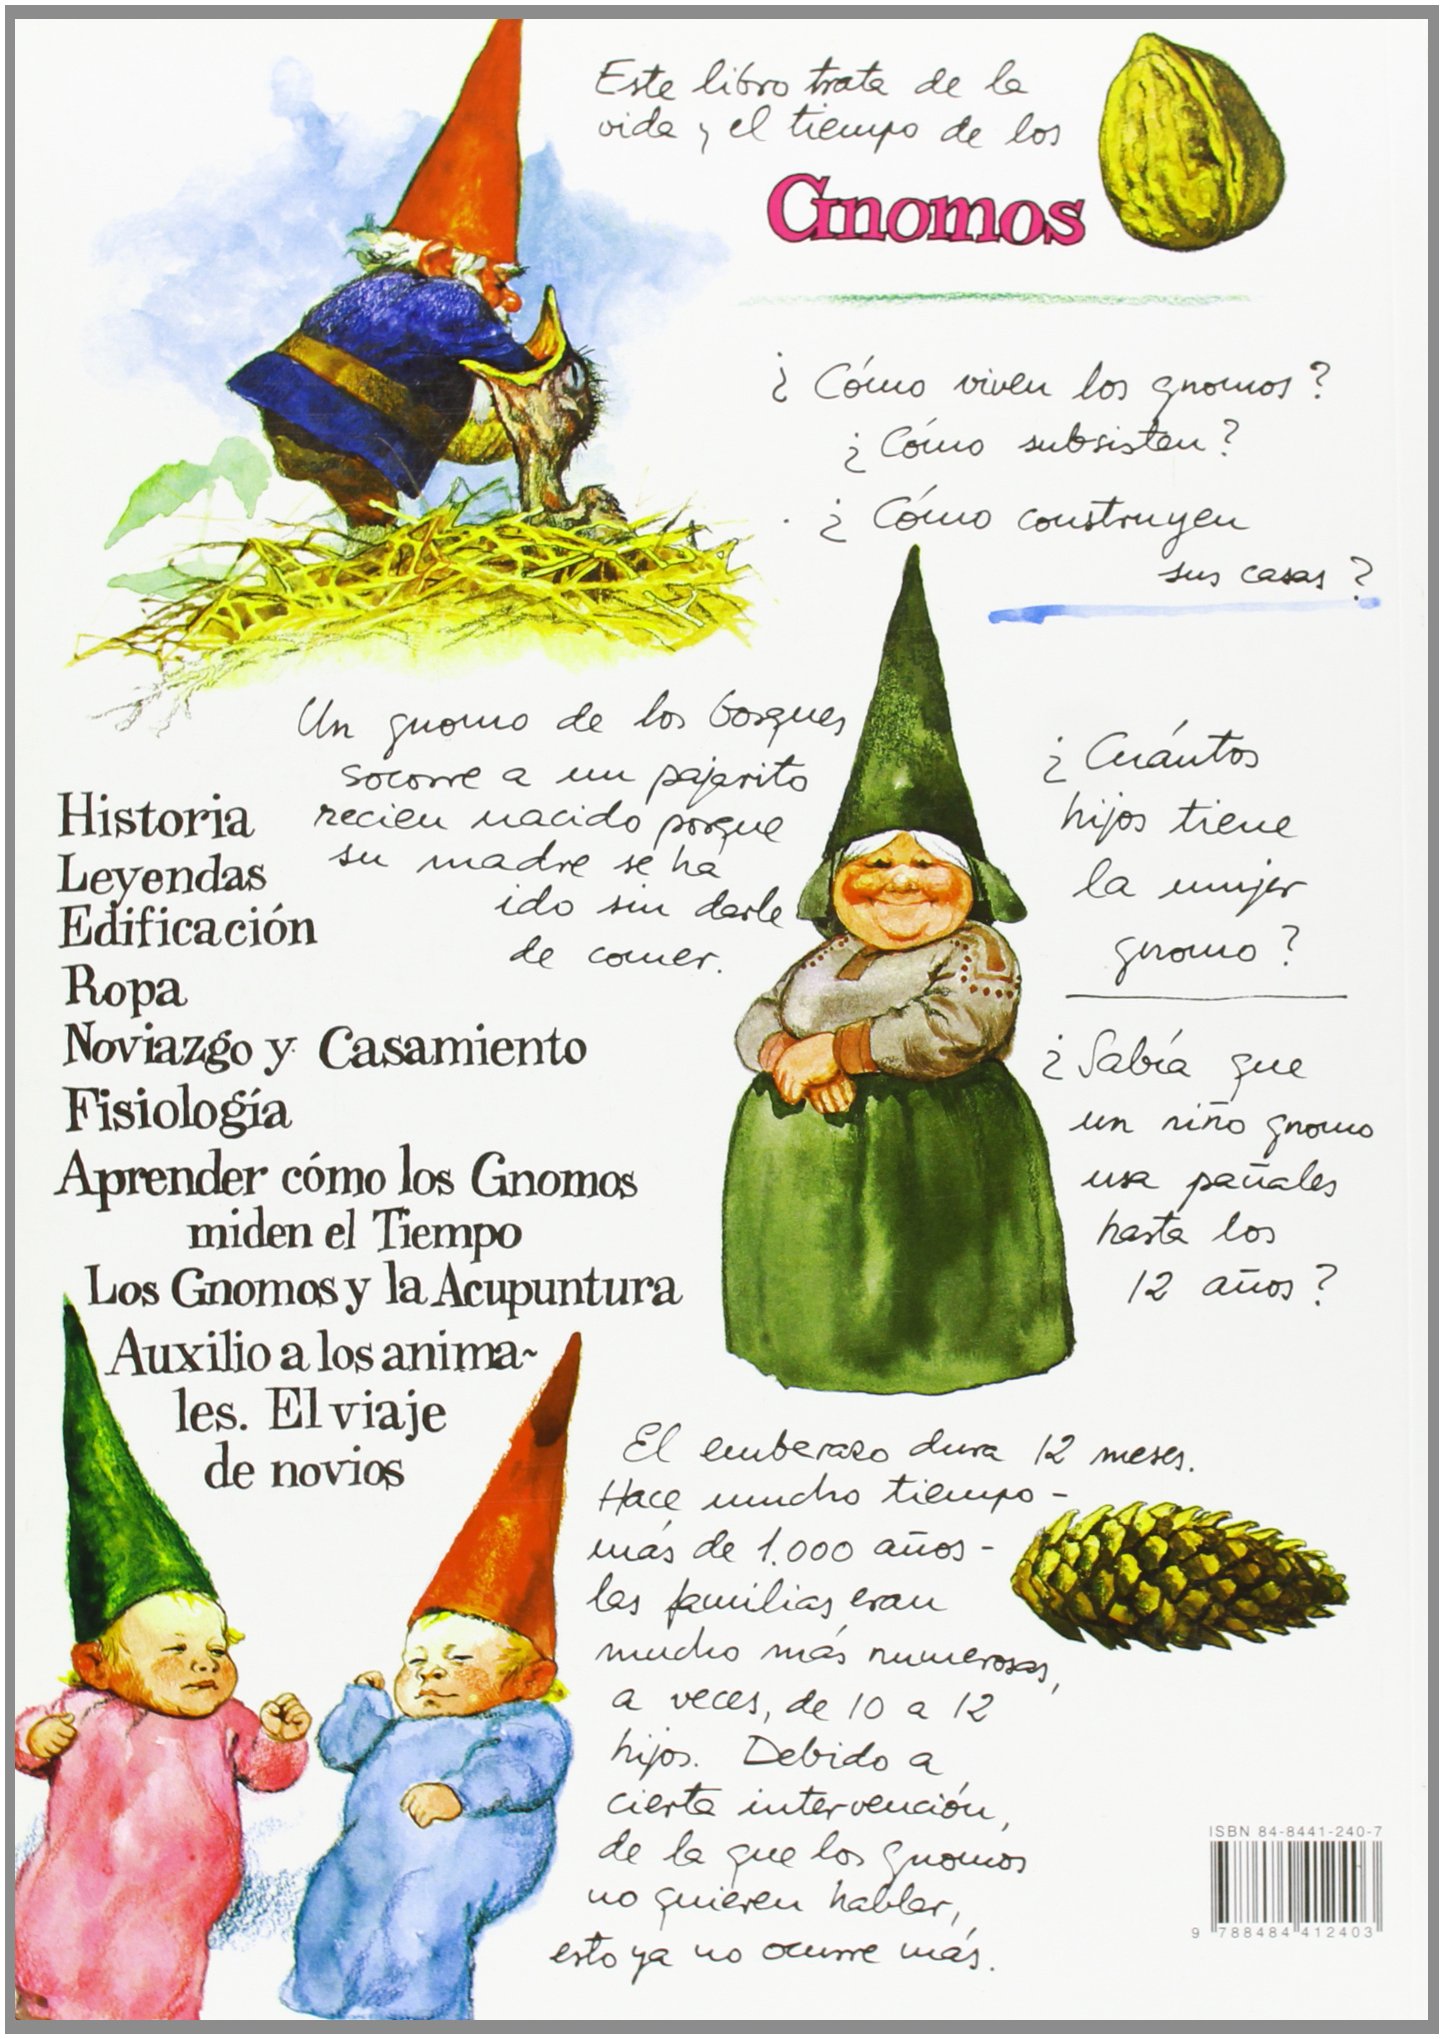 Este libro trata de la
vida y el tiempo de los
Gnomos
¿Cómo viven los gnomos?
¿Cómo subsisten?
¿Cómo construyen
sus casas?
Un gnomo de los bosques
socorre a un pajarito
recien nacido porque
su madre se ha
ido sin darle
de comer.
¿Cuántos
hijos tiene
la mujer
gnomo?
¿Sabía que
un niño gnomo
usa pañales
hasta los
12 años?
Historia
Leyendas
Edificación
Ropa
Noviazgo y Casamiento
Fisiología
Aprender cómo los Gnomos
miden el Tiempo
Los Gnomos y la Acupuntura
Auxilio a los anima-
les. El viaje
de novios
El emberazo dura 12 meses.
Hace mucho tiempo -
más de 1.000 años -
las familias eran
mucho más numerosas,
a veces, de 10 a 12
hijos. Debido a
cierta intervención,
de la que los gnomos
no quieren hablar,
esto ya no ocurre más.
ISBN 84-8441-240-7
9 788484 412403